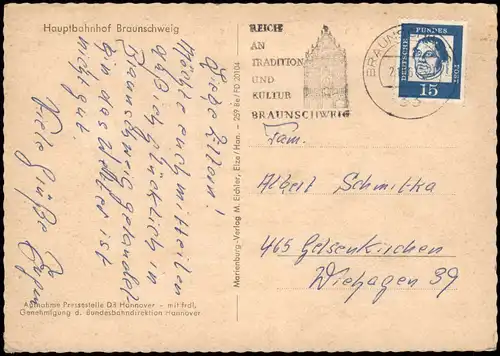 Hauptbahnhof Braunschweig
Liebe Eltern!
Möchte euch mitteilen
daß ich glücklich in
Braunschweig gelandet
bin das Wetter ist
nicht gut.
Viele Grüße
Aufnahme Pressestelle DB Hannover - mit frdl.
Genehmigung d. Bundesbahndirektion Hannover
Marienburg-Verlag M. Eichler, Elze/Han. - 259 Be/FD 20104
REICH
AN
TRADITION
UND
KULTUR
BRAUNSCHWEIG
BRAUNS
DEUTSCHE BUNDESPOST
15
Fam.
Albert Schmitka
465 Gelsenkirchen
Wiehagen 39